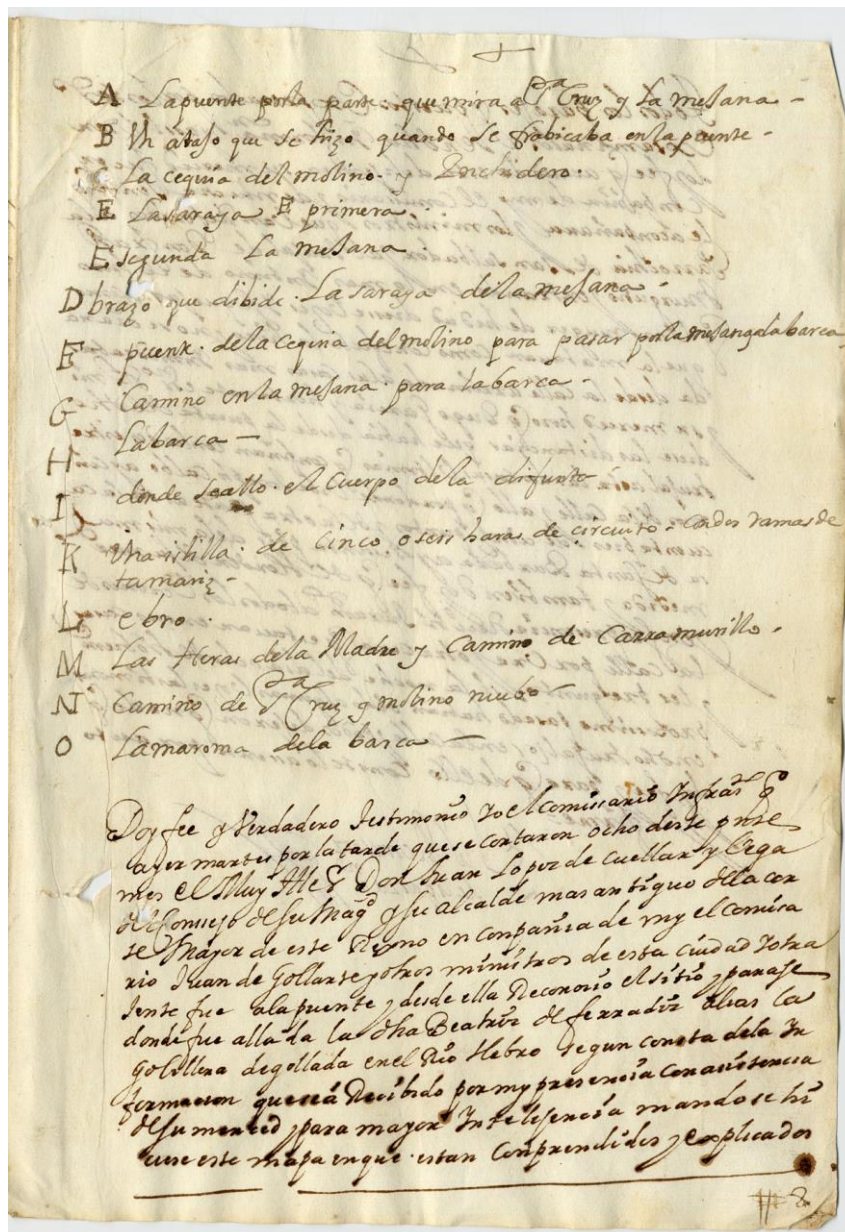 A La puente por la parte que mira a Sta Cruz y La mejana -
B Un atajo que se hizo quando se frabicaba en la puente -
C La cequia del molino y Inchidero.
E La saraya E primera.
E segunda La mejana.
D brazo que dibide. La saraya de la mejana -
F puente. de la cequia del molino para pasar por la mejana a la barca
G Camino en la mejana para la barca -
H La barca -
I donde se allo. el cuerpo de la difunta -
K Una islilla. de cinco o seis baras de circuito - con dos ramas de
tamariz -
L ebro.
M Las Heras de la Madre y Camino de Carra murillo.
N Camino de Sta Cruz y molino nuebo -
O La maroma de la barca -
Doy fee y Verdadero Testimonio Yo el Comissario Infrascto
ayer martes por la tarde que se contaron ocho deste pnte
mes el Muy Ille Sr Don Juan Lopez de Cuellar y Vega
del Consejo de su Magd y su alcalde mas antiguo de la cor
te Mayor de este Reyno en conpañia de my el Comisa
rio Juan de Gollart y otros ministros de esta ciudad y otra
Jente fue a la puente y desde ella Reconocio el sitio y paraje
donde fue allada la dha Beatriz de ferradiz alias la
Golillera degollada en el Rio Hebro segun consta de la In
formacion que se á Recibido por my presencia con asistencia
de su merced y para mayor Intelijencia mando se hi
ciese este mapa en que estan Conprendidos y explicados
8